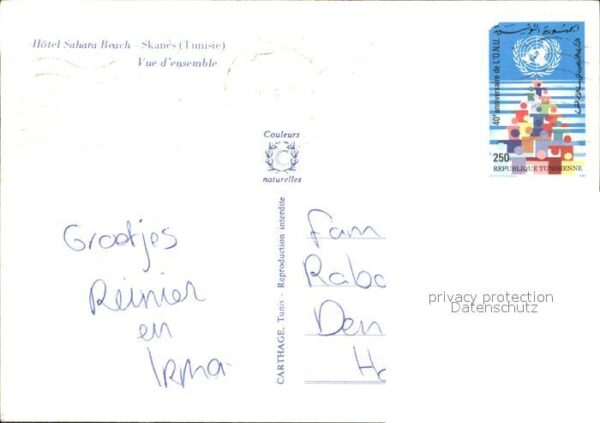 Hôtel Sahara Beach - Skanès (Tunisie)
Vue d'ensemble
الجمهورية التونسية
40e anniversaire de L'O.N.U.
250
REPUBLIQUE TUNISIENNE
Couleurs
naturelles
CARTHAGE, Tunis - Reproduction interdite
Grootjes
Reinier
en
Irma
Fam
Rabo
Den
Ha
privacy protection
Datenschutz